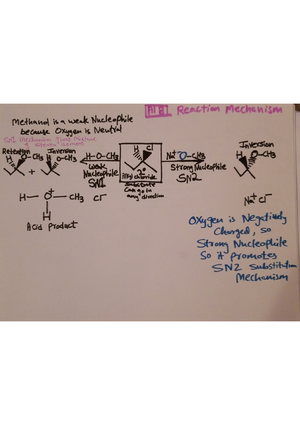 Reaction Mechanism
Methanol is a weak Nucleophile
because Oxygen is Neutral
SN1 Mechanism gives Mixture
Retention
Inversion
H
O-CH3
H
O-CH3
+
H-O-CH3
weak
Nucleophile
SN1
H
Cl
2°
Allyl chloride
substrate
can go in
any direction
Na+ O-CH3
Strong Nucleophile
SN2
Inversion
H
O-CH3
H-O-CH3
+
H
Cl-
Acid Product
Na+ Cl-
Oxygen is Negatively
Charged, so
Strong Nucleophile
So it Promotes
SN2 Substitution
Mechanism